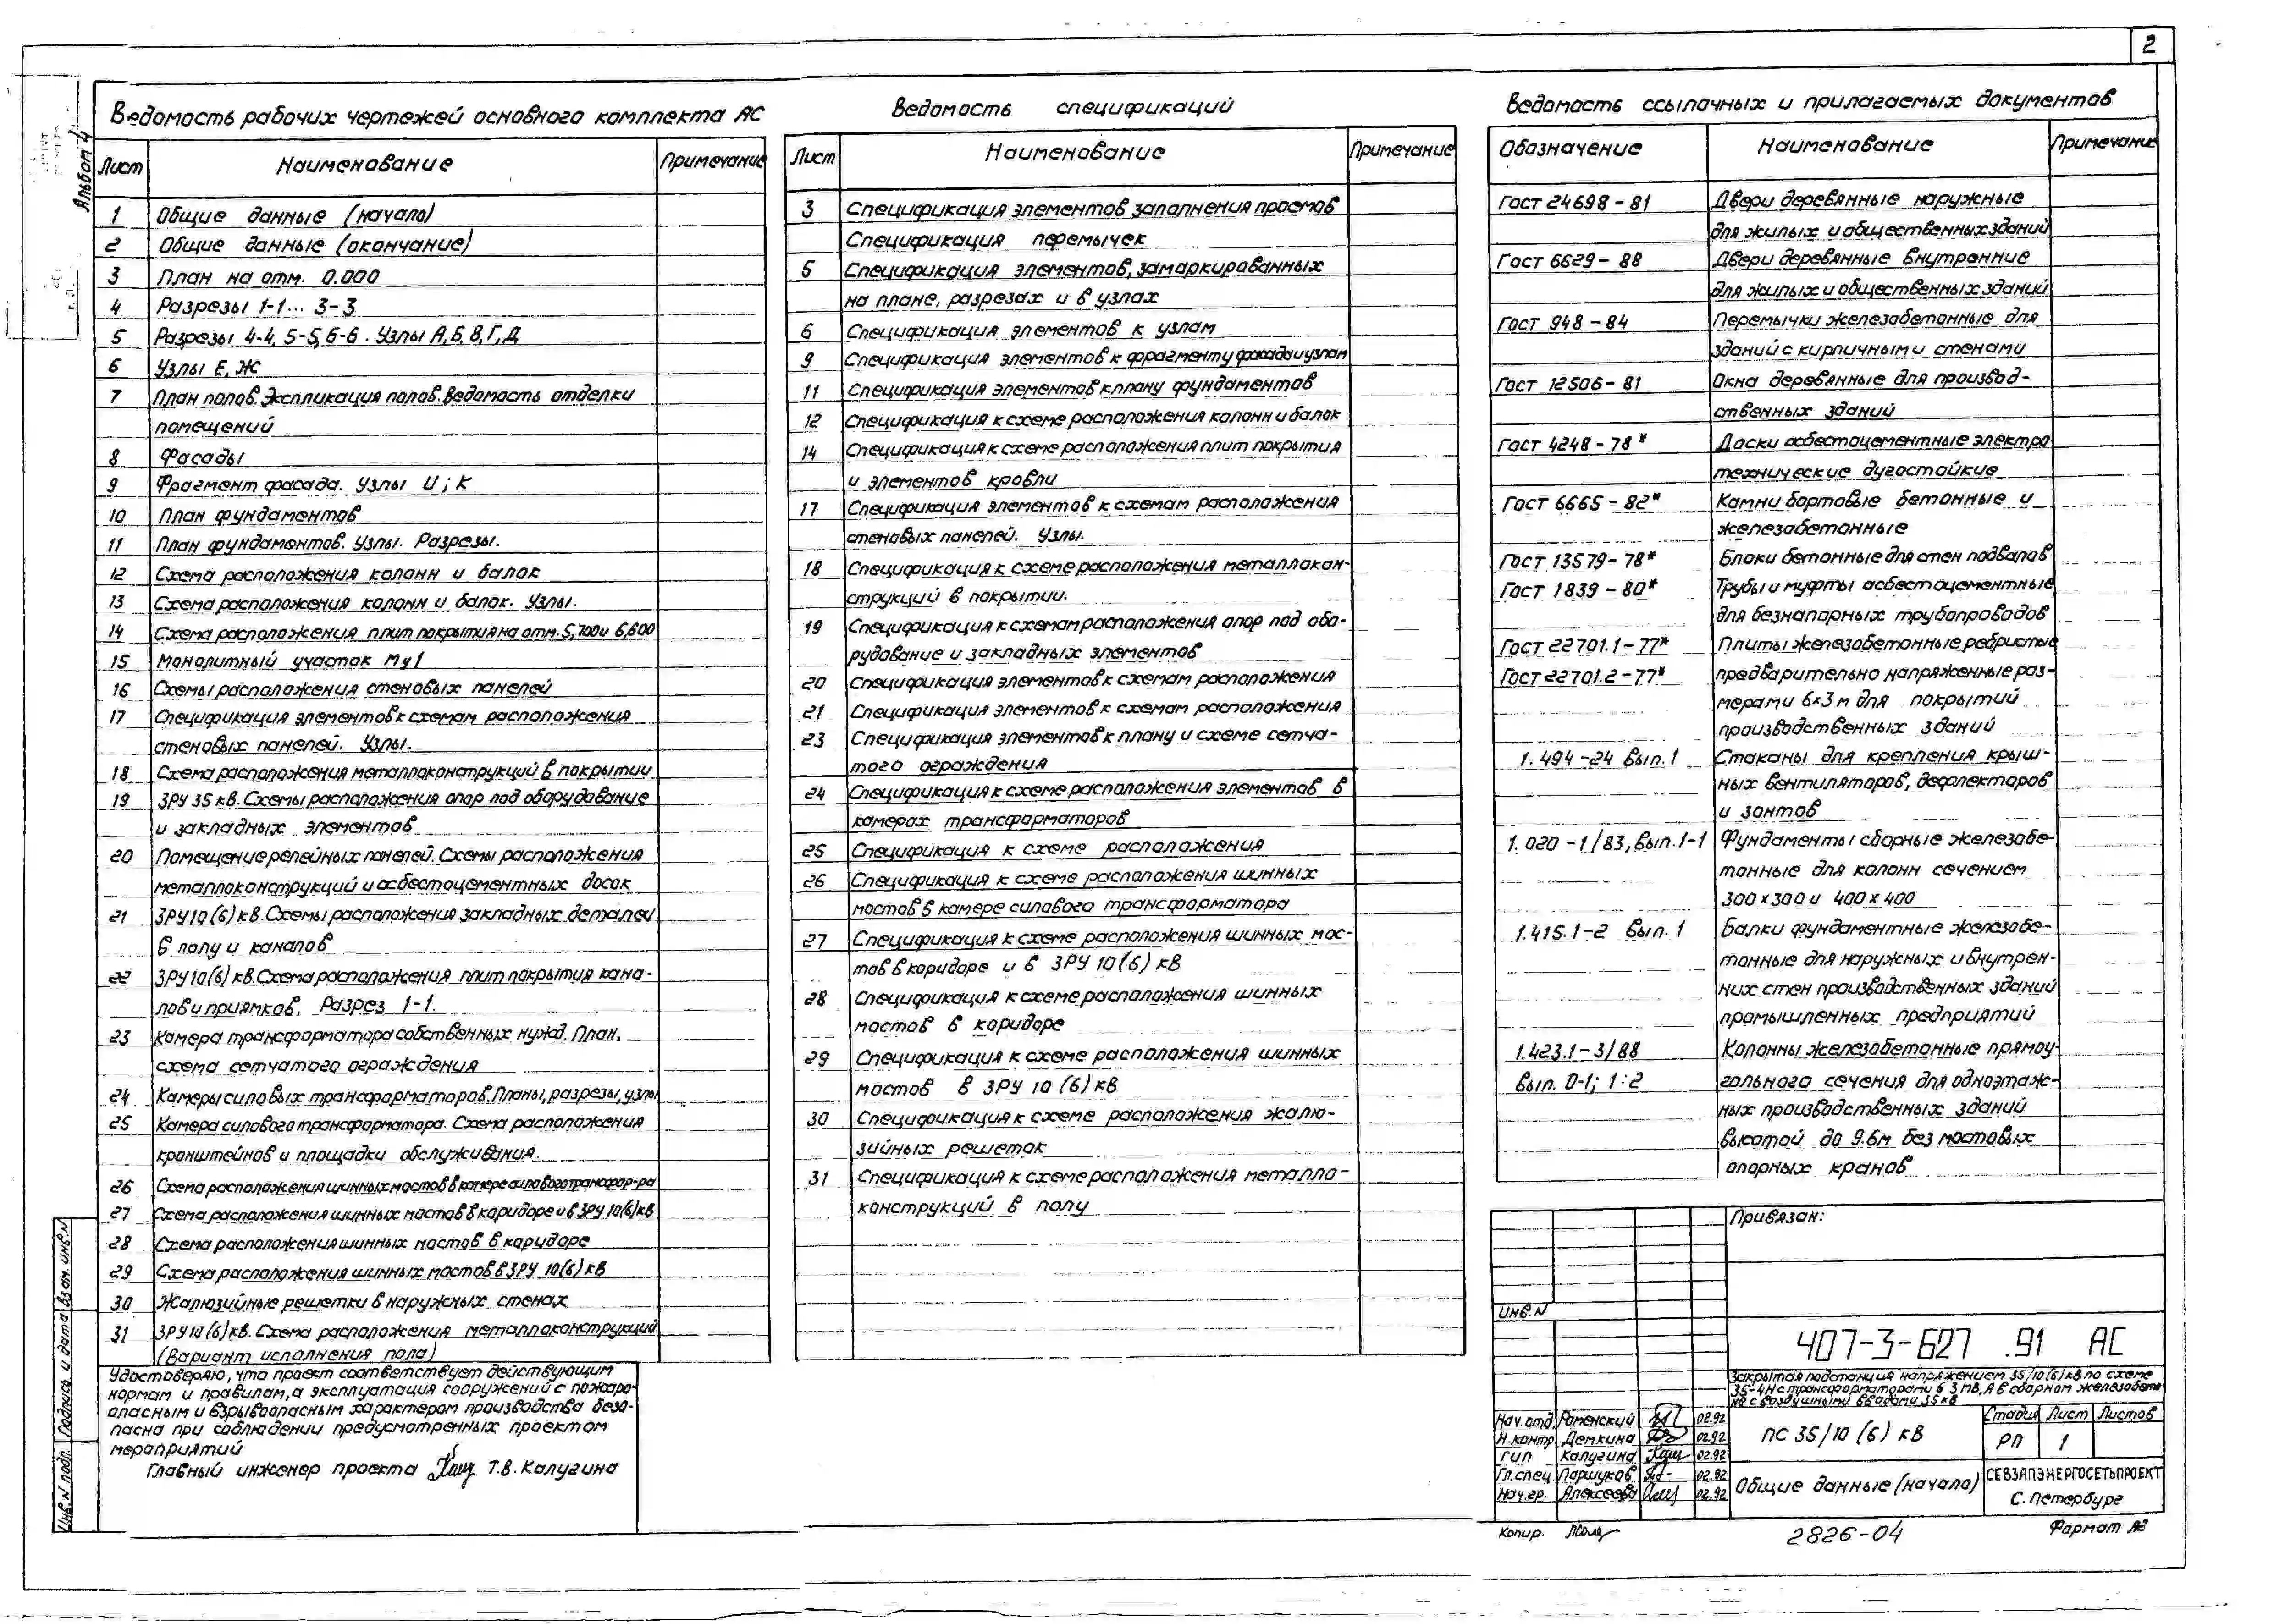 2
Альбом 4
Ведомость рабочих чертежей основного комплекта АС
Лист Наименование Примечание
1 Общие данные (начало)
2 Общие данные (окончание)
3 План на отм. 0.000
4 Разрезы 1-1... 3-3
5 Разрезы 4-4, 5-5, 6-6. Узлы А,Б,В,Г,Д
6 Узлы Е, Ж
7 План полов. Экспликация полов. Ведомость отделки
помещений
8 Фасады
9 Фрагмент фасада. Узлы И; К
10 План фундаментов
11 План фундаментов. Узлы. Разрезы.
12 Схема расположения колонн и балок
13 Схема расположения колонн и балок. Узлы.
14 Схема расположения плит покрытия на отм. 5,700 и 6,600
15 Монолитный участок Му1
16 Схемы расположения стеновых панелей
17 Спецификация элементов к схемам расположения
стеновых панелей. Узлы.
18 Схема расположения металлоконструкций в покрытии
19 ЗРУ 35 кв. Схемы расположения опор под оборудование
и закладных элементов
20 Помещение релейных панелей. Схемы расположения
металлоконструкций и асбестоцементных досок
21 ЗРУ 10 (6) кв. Схемы расположения закладных деталей
в полу и каналов
22 ЗРУ 10 (6) кв. Схема расположения плит покрытия кана-
лов и приямков. Разрез 1-1.
23 Камера трансформатора собственных нужд. План,
схема сетчатого ограждения
24 Камеры силовых трансформаторов. Планы, разрезы, узлы
25 Камера силового трансформатора. Схема расположения
кронштейнов и площадки обслуживания.
26 Схема расположения шинных мостов в камере силового трансфор-ра
27 Схема расположения шинных мостов в коридоре и в ЗРУ 10(6) кв
28 Схема расположения шинных мостов в коридоре
29 Схема расположения шинных мостов в ЗРУ 10(6) кв
30 Жалюзийные решетки в наружных стенах
31 ЗРУ 10 (6) кв. Схема расположения металлоконструкций
(Вариант исполнения пола)
Удостоверяю, что проект соответствует действующим
нормам и правилам, а эксплуатация сооружений с пожаро-
опасным и взрывоопасным характером производства безо-
пасна при соблюдении предусмотренных проектом
мероприятий
Главный инженер проекта Т.В. Калугина
Ведомость спецификаций
Лист Наименование Примечание
3 Спецификация элементов заполнения проемов
Спецификация перемычек
5 Спецификация элементов, замаркированных
на плане, разрезах и в узлах
6 Спецификация элементов к узлам
9 Спецификация элементов к фрагменту фасада и узлам
11 Спецификация элементов к плану фундаментов
12 Спецификация к схеме расположения колонн и балок
14 Спецификация к схеме расположения плит покрытия
и элементов кровли
17 Спецификация элементов к схемам расположения
стеновых панелей. Узлы.
18 Спецификация к схеме расположения металлокон-
струкций в покрытии.
19 Спецификация к схемам расположения опор под обо-
рудование и закладных элементов
20 Спецификация элементов к схемам расположения
21 Спецификация элементов к схемам расположения
23 Спецификация элементов к плану и схеме сетча-
того ограждения
24 Спецификация к схеме расположения элементов в
камерах трансформаторов
25 Спецификация к схеме расположения
26 Спецификация к схеме расположения шинных
мостов в камере силового трансформатора
27 Спецификация к схеме расположения шинных мос-
тов в коридоре и в ЗРУ 10(6) кВ
28 Спецификация к схеме расположения шинных
мостов в коридоре
29 Спецификация к схеме расположения шинных
мостов в ЗРУ 10 (6) кВ
30 Спецификация к схеме расположения жалю-
зийных решеток
31 Спецификация к схеме расположения металло-
конструкций в полу
Ведомость ссылочных и прилагаемых документов
Обозначение Наименование Примечание
Гост 24698-81 Двери деревянные наружные
для жилых и общественных зданий
Гост 6629-88 Двери деревянные внутренние
для жилых и общественных зданий
Гост 948-84 Перемычки железобетонные для
зданий с кирпичными стенами
Гост 12506-81 Окна деревянные для производ-
ственных зданий
Гост 4248-78* Доски асбестоцементные электро
технические дугостойкие
Гост 6665-82* Камни бортовые бетонные и
железобетонные
Гост 13579-78* Блоки бетонные для стен подвалов
Гост 1839-80* Трубы и муфты асбестоцементные
для безнапорных трубопроводов
Гост 22701.1-77* Плиты железобетонные ребристые
Гост 22701.2-77* предварительно напряженные раз-
мерами 6х3 м для покрытий
производственных зданий
1.494-24 вып.1 Стаканы для крепления крыш-
ных вентиляторов, дефлекторов
и зонтов
1.020-1/83, вып.1-1 Фундаменты сборные железобе-
тонные для колонн сечением
300х300 и 400х400
1.415.1-2 вып. 1 Балки фундаментные железобе-
тонные для наружных и внутрен-
них стен производственных зданий
промышленных предприятий
1.423.1-3/88 Колонны железобетонные прямоу-
вып. 0-1; 1:2 гольного сечения для одноэтаж-
ных производственных зданий
высотой до 9.6м без мостовых
опорных кранов
Привязан:
Инв. N
407-3-627 .91 АС
Закрытая подстанция напряжением 35/10(6) кв по схеме
35-4Н с трансформаторами 6 3 МВ,А в сборном железобето
не с воздушными вводами 35 кв
Нач.отд. Роменский 02.92
Н.контр. Демкина 02.92
ГИП Калугина 02.92
Гл.спец. Паршуков 02.92
Нач.гр. Алексеева 02.92
ПС 35/10 (6) кВ
Стадия Лист Листов
РП 1
Общие данные (начало)
СЕВЗАПЭНЕРГОСЕТЬПРОЕКТ
С. Петербург
Копир.
2826-04
Формат А2
Инв. N подл. Подпись и дата Взам. инв. N